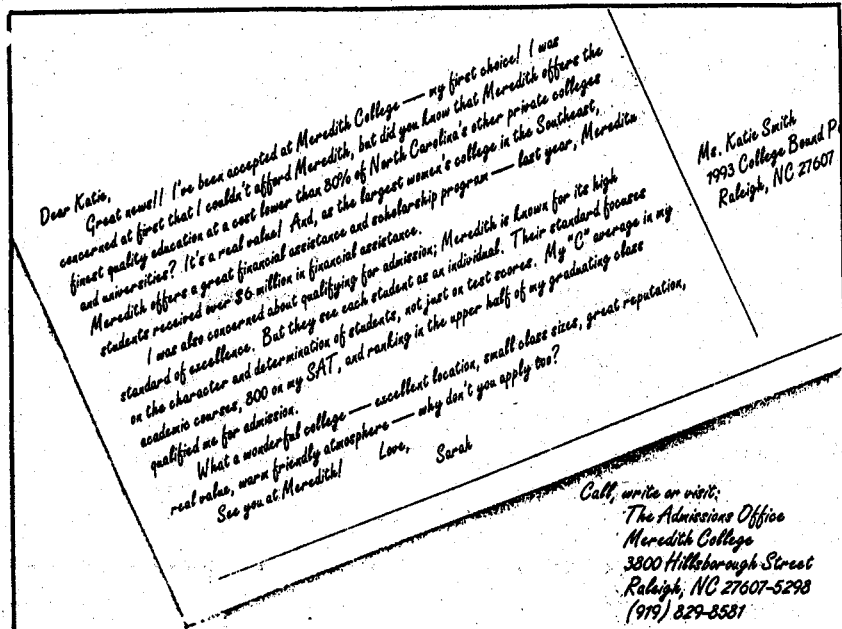 Dear Katie,
Great news!! I've been accepted at Meredith College — my first choice! I was
concerned at first that I couldn't afford Meredith, but did you know that Meredith offers the
finest quality education at a cost lower than 80% of North Carolina's other private colleges
and universities? It's a real value! And, as the largest women's college in the Southeast,
Meredith offers a great financial assistance and scholarship program — last year, Meredith
students received over $6 million in financial assistance.
I was also concerned about qualifying for admission; Meredith is known for its high
standard of excellence. But they see each student as an individual. Their standard focuses
on the character and determination of students, not just on test scores. My "C" average in my
academic courses, 800 on my SAT, and ranking in the upper half of my graduating class
qualified me for admission.
What a wonderful college — excellent location, small class sizes, great reputation,
real value, warm friendly atmosphere — why don't you apply too?
See you at Meredith!
Love,
Sarah
Ms. Katie Smith
1993 College Bound
Raleigh, NC 27607
Call, write or visit:
The Admissions Office
Meredith College
3800 Hillsborough Street
Raleigh, NC 27607-5298
(919) 829-8581